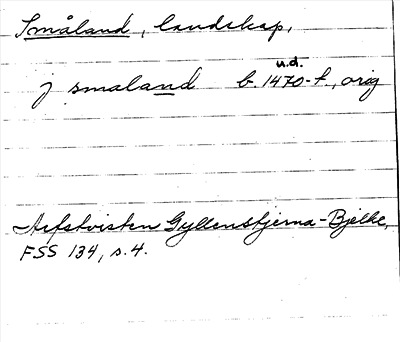 Småland, landskap.
u.d.
j smaland b. 1470-t., orig
Arfstvisten Gyllenstjerna-Bjelke,
FSS 134, s. 4.